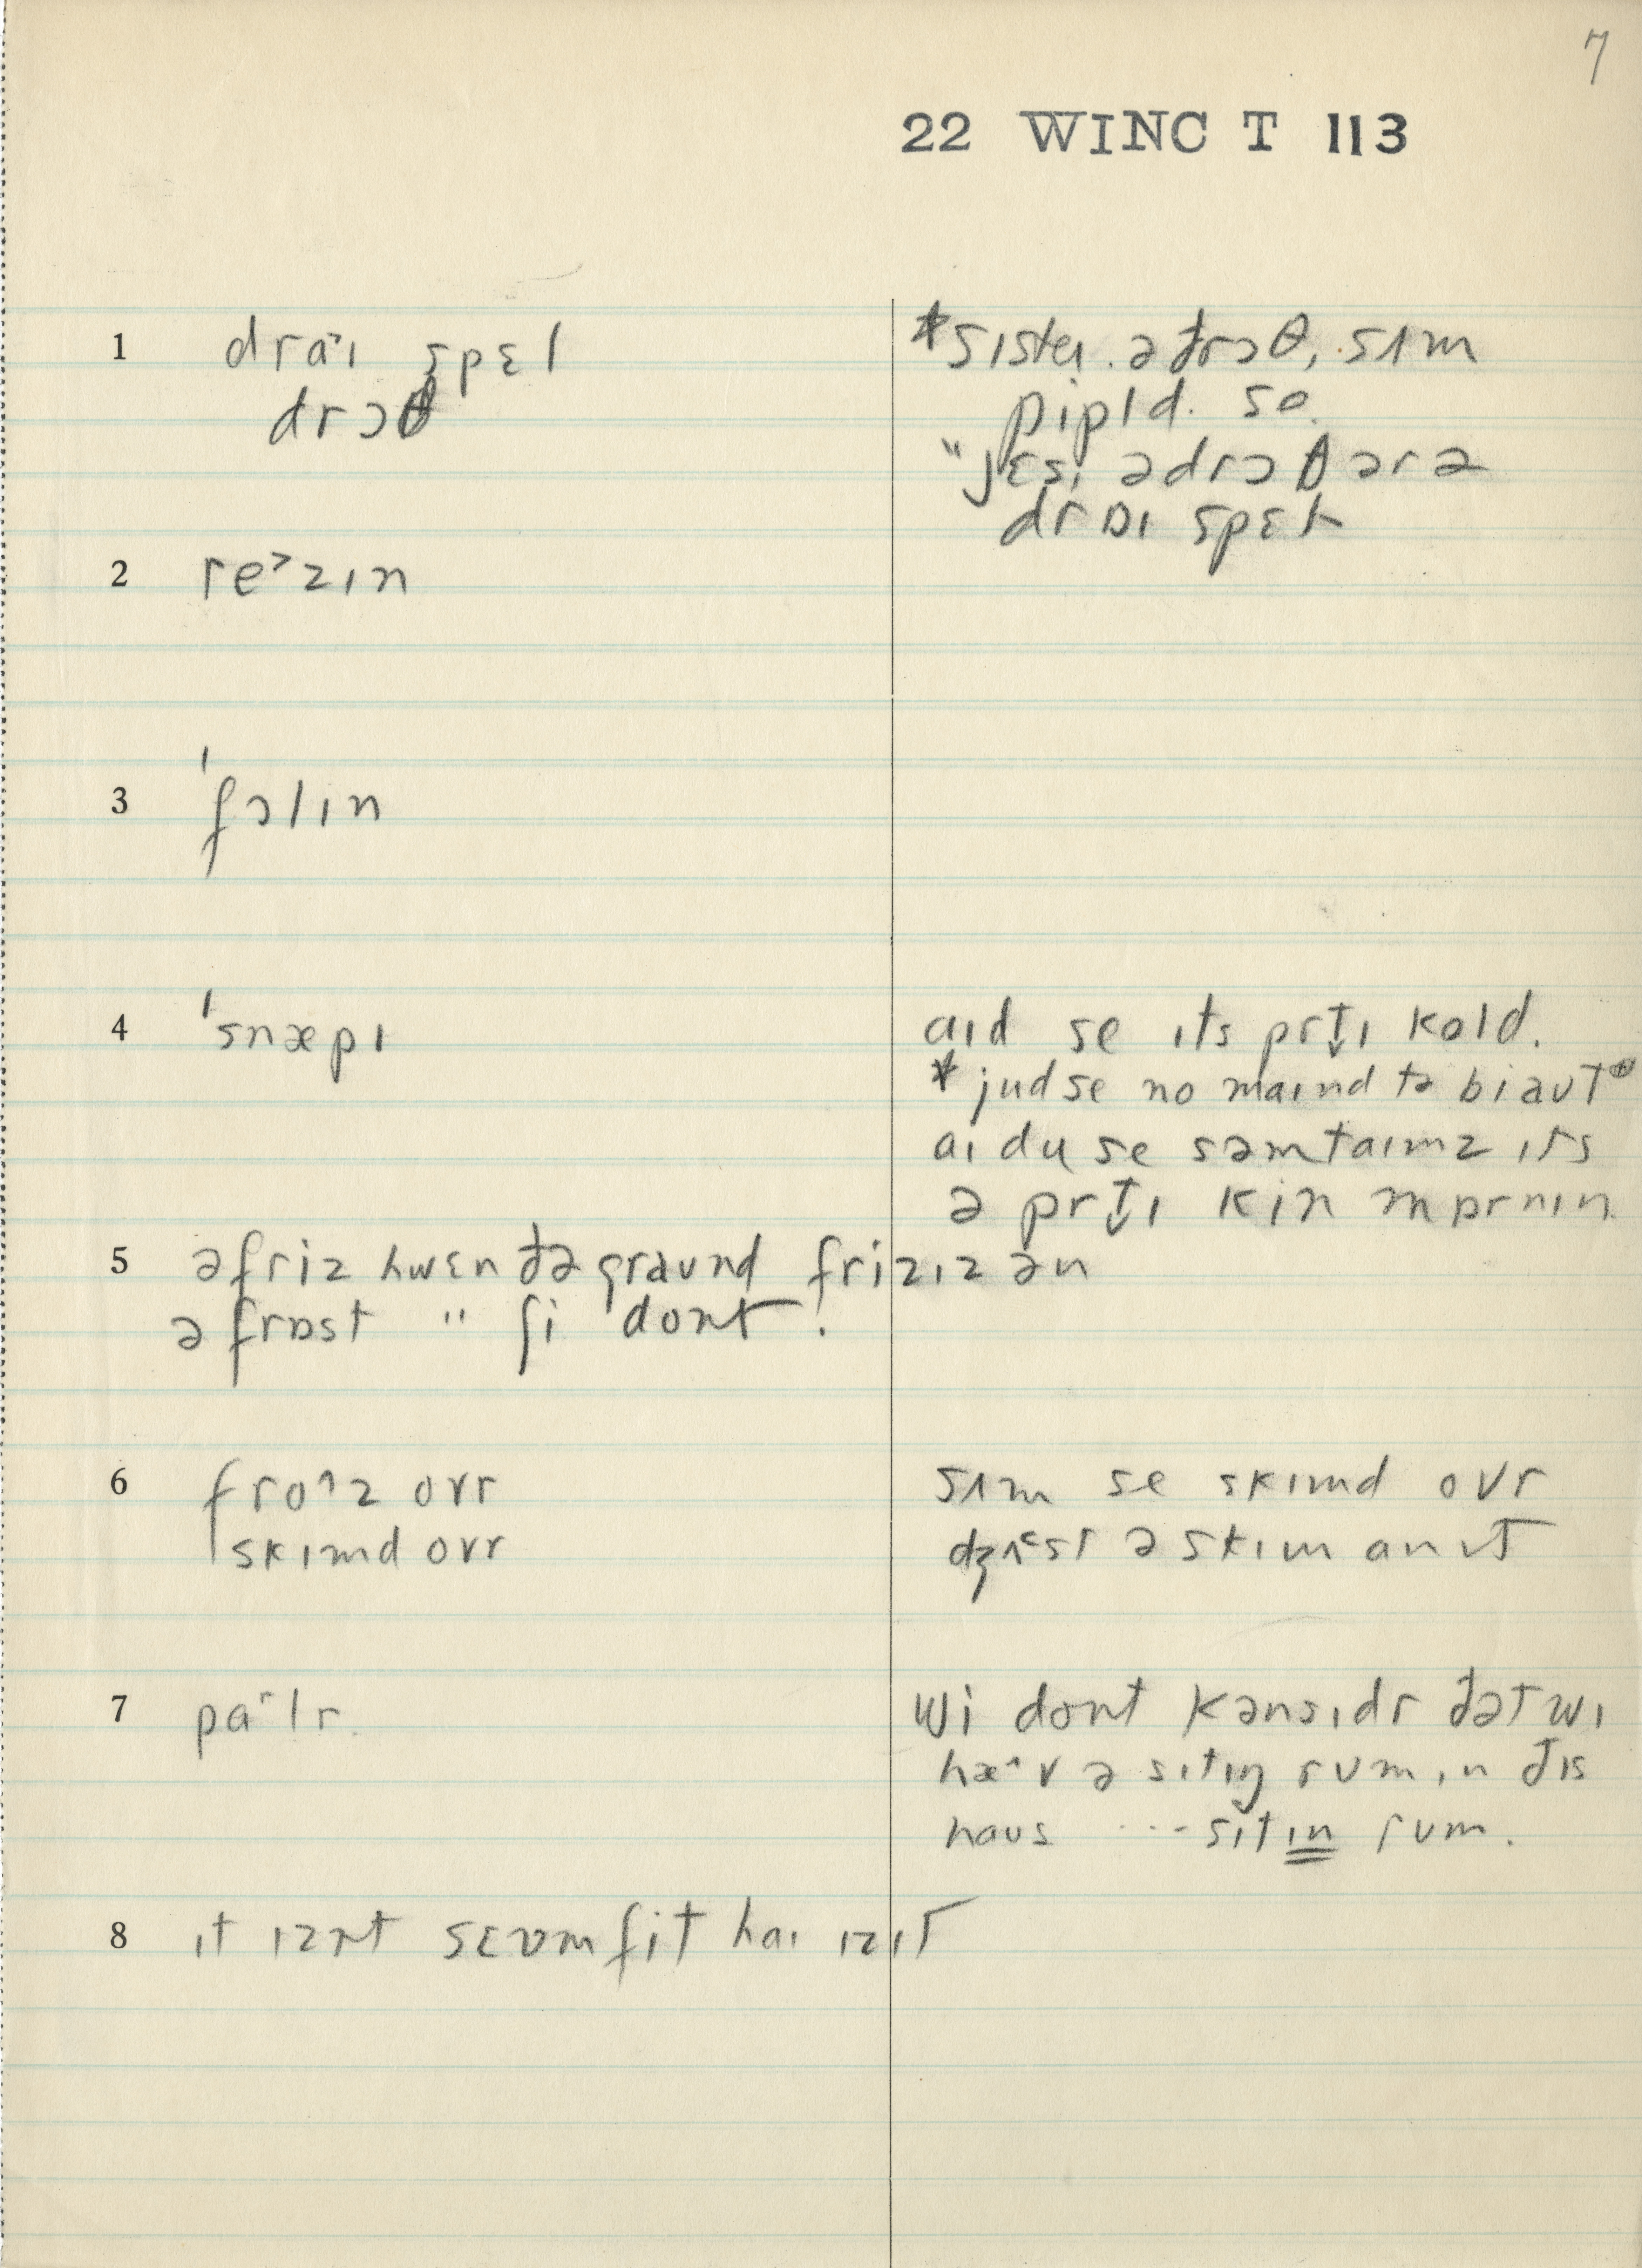 7
22 WINC T 113
1 dra˃ɪ spɛl
drɔθ
*sister. ə drɔθ, sʌm
pipld. se.
"jɛs, ə drɔθ ər ə
drɒɪ spɛl
2 re˃zɪn
3 ˈfɔlɪn
4 ˈsnæpɪ
aɪd se ɪts prt̬ɪ kold.
* jud se no maɪnd tə bi aʊt
aɪ du se səmtaɪmz ɪts
ə prt̬ɪ kin mɒrnɪn.
5 ə friz hwɛn ðə graʊnd frizɪz ən
ə frɒst " ʃi dont.
6 fro^z ovr
skɪmd ovr
sʌm se skɪmd ovr
dʒʌst ə skɪm an ɪt
7 pa˂lr.
wi dont kənsɪdr ðət wɪ
hæ^v ə sɪtɪŋ rum ɪn ðɪs
haʊs ... sɪtɪn rum.
8 ɪt ɪznt sɛvm fit haɪ ɪz ɪt